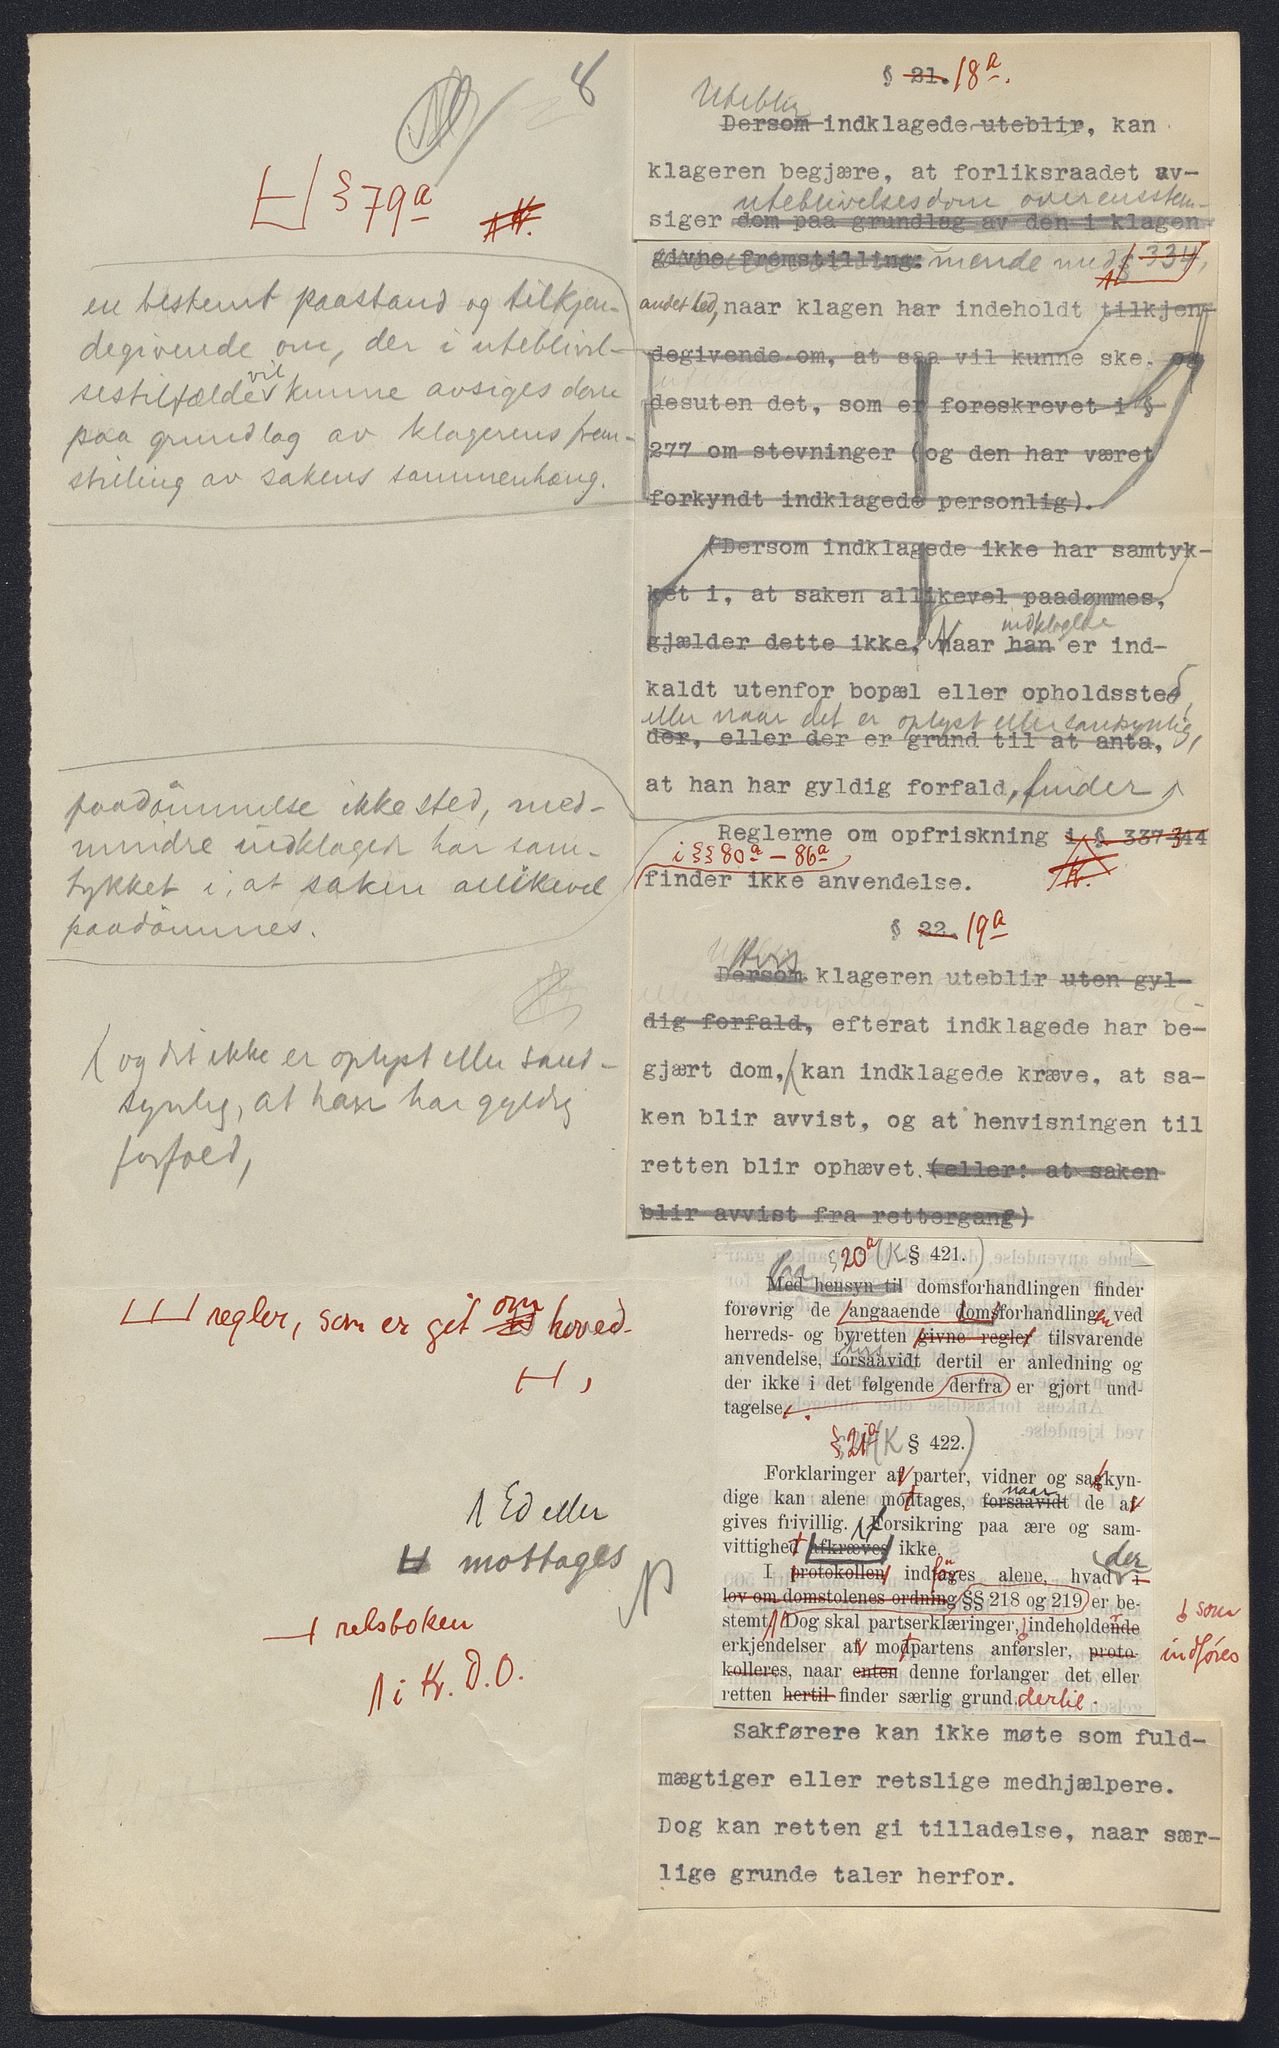 8
§ 79a
en bestemt paastand og tilkjen-
degivende om, der i uteblivel-
sestilfælde vil kunne avsiges dom
paa grundlag av klagerens frem-
stilling av sakens sammenhæng.
paadömmelse ikke sted, med-
mindre indklagede har sam-
tykket i, at saken allikevel
paadömmes.
og det ikke er oplyst eller sand-
synlig, at han har gyldig
forfald,
regler, som er git om hoved-
Ed eller
mottages
retsboken
i Kr. D. O.
§ 21. 18a.
Uteblir
Dersom indklagede uteblir, kan
klageren begjære, at forliksraadet av-
uteblivelsesdom overensstem-
siger dom paa grundlag av den i klagen
givne fremstilling: mende med § 334,
andet led, naar klagen har indeholdt tilkjen-
degivende om, at saa vil kunne ske, og
desuten det, som er foreskrevet i §
277 om stevninger (og den har været
forkyndt indklagede personlig).
(Dersom indklagede ikke har samtyk-
ket i, at saken allikevel paadømmes,
indklagede
gjælder dette ikke, Naar han er ind-
kaldt utenfor bopæl eller opholdssted
eller naar det er oplyst eller sandsynlig,
der, eller der er grund til at anta,
at han har gyldig forfald, finder
Reglerne om opfriskning i § 337-344
i §§ 80a - 86a
finder ikke anvendelse.
§ 22. 19a
Hvis
Dersom klageren uteblir uten gyl-
dig forfald, efterat indklagede har be-
gjært dom, kan indklagede kræve, at sa-
ken blir avvist, og at henvisningen til
retten blir ophævet. (eller: at saken
blir avvist fra rettergang)
§ 20a (K § 421.)
Paa
Med hensyn til domsforhandlingen finder
forøvrig de angaaende domsforhandlingen ved
herreds- og byretten givne regler tilsvarende
hvis
anvendelse, forsaavidt dertil er anledning og
der ikke i det følgende derfra er gjort und-
tagelse.
§ 21a (K § 422.)
Forklaringer af parter, vidner og sagkyn-
naar
dige kan alene modtages, forsaavidt de af-
gives frivillig. Forsikring paa ære og sam-
vittighed afkræves ikke.
der
I protokollen indføres alene, hvad i
lov om domstolenes ordning §§ 218 og 219 er be-
stemt. Dog skal partserklæringer, indeholdende
som
erkjendelser af modpartens anførsler, proto-
indføres
kolleres, naar enten denne forlanger det eller
retten hertil finder særlig grund dertil.
Sakførere kan ikke møte som fuld-
mægtiger eller retslige medhjælpere.
Dog kan retten gi tilladelse, naar sær-
lige grunde taler herfor.